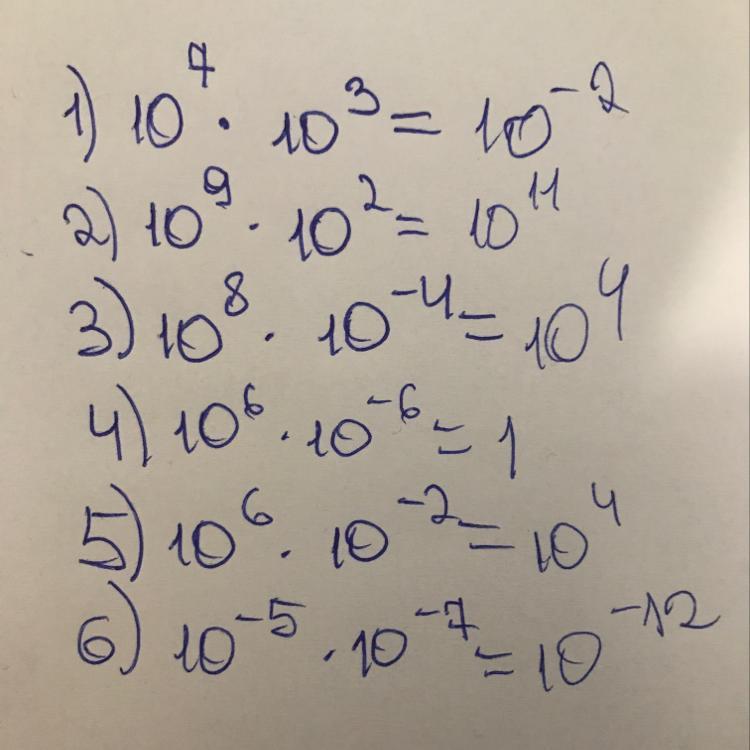 1) 10⁷ · 10³ = 10⁻²
2) 10⁹ · 10² = 10¹¹
3) 10⁸ · 10⁻⁴ = 10⁴
4) 10⁶ · 10⁻⁶ = 1
5) 10⁶ · 10⁻² = 10⁴
6) 10⁻⁵ · 10⁻⁷ = 10⁻¹²